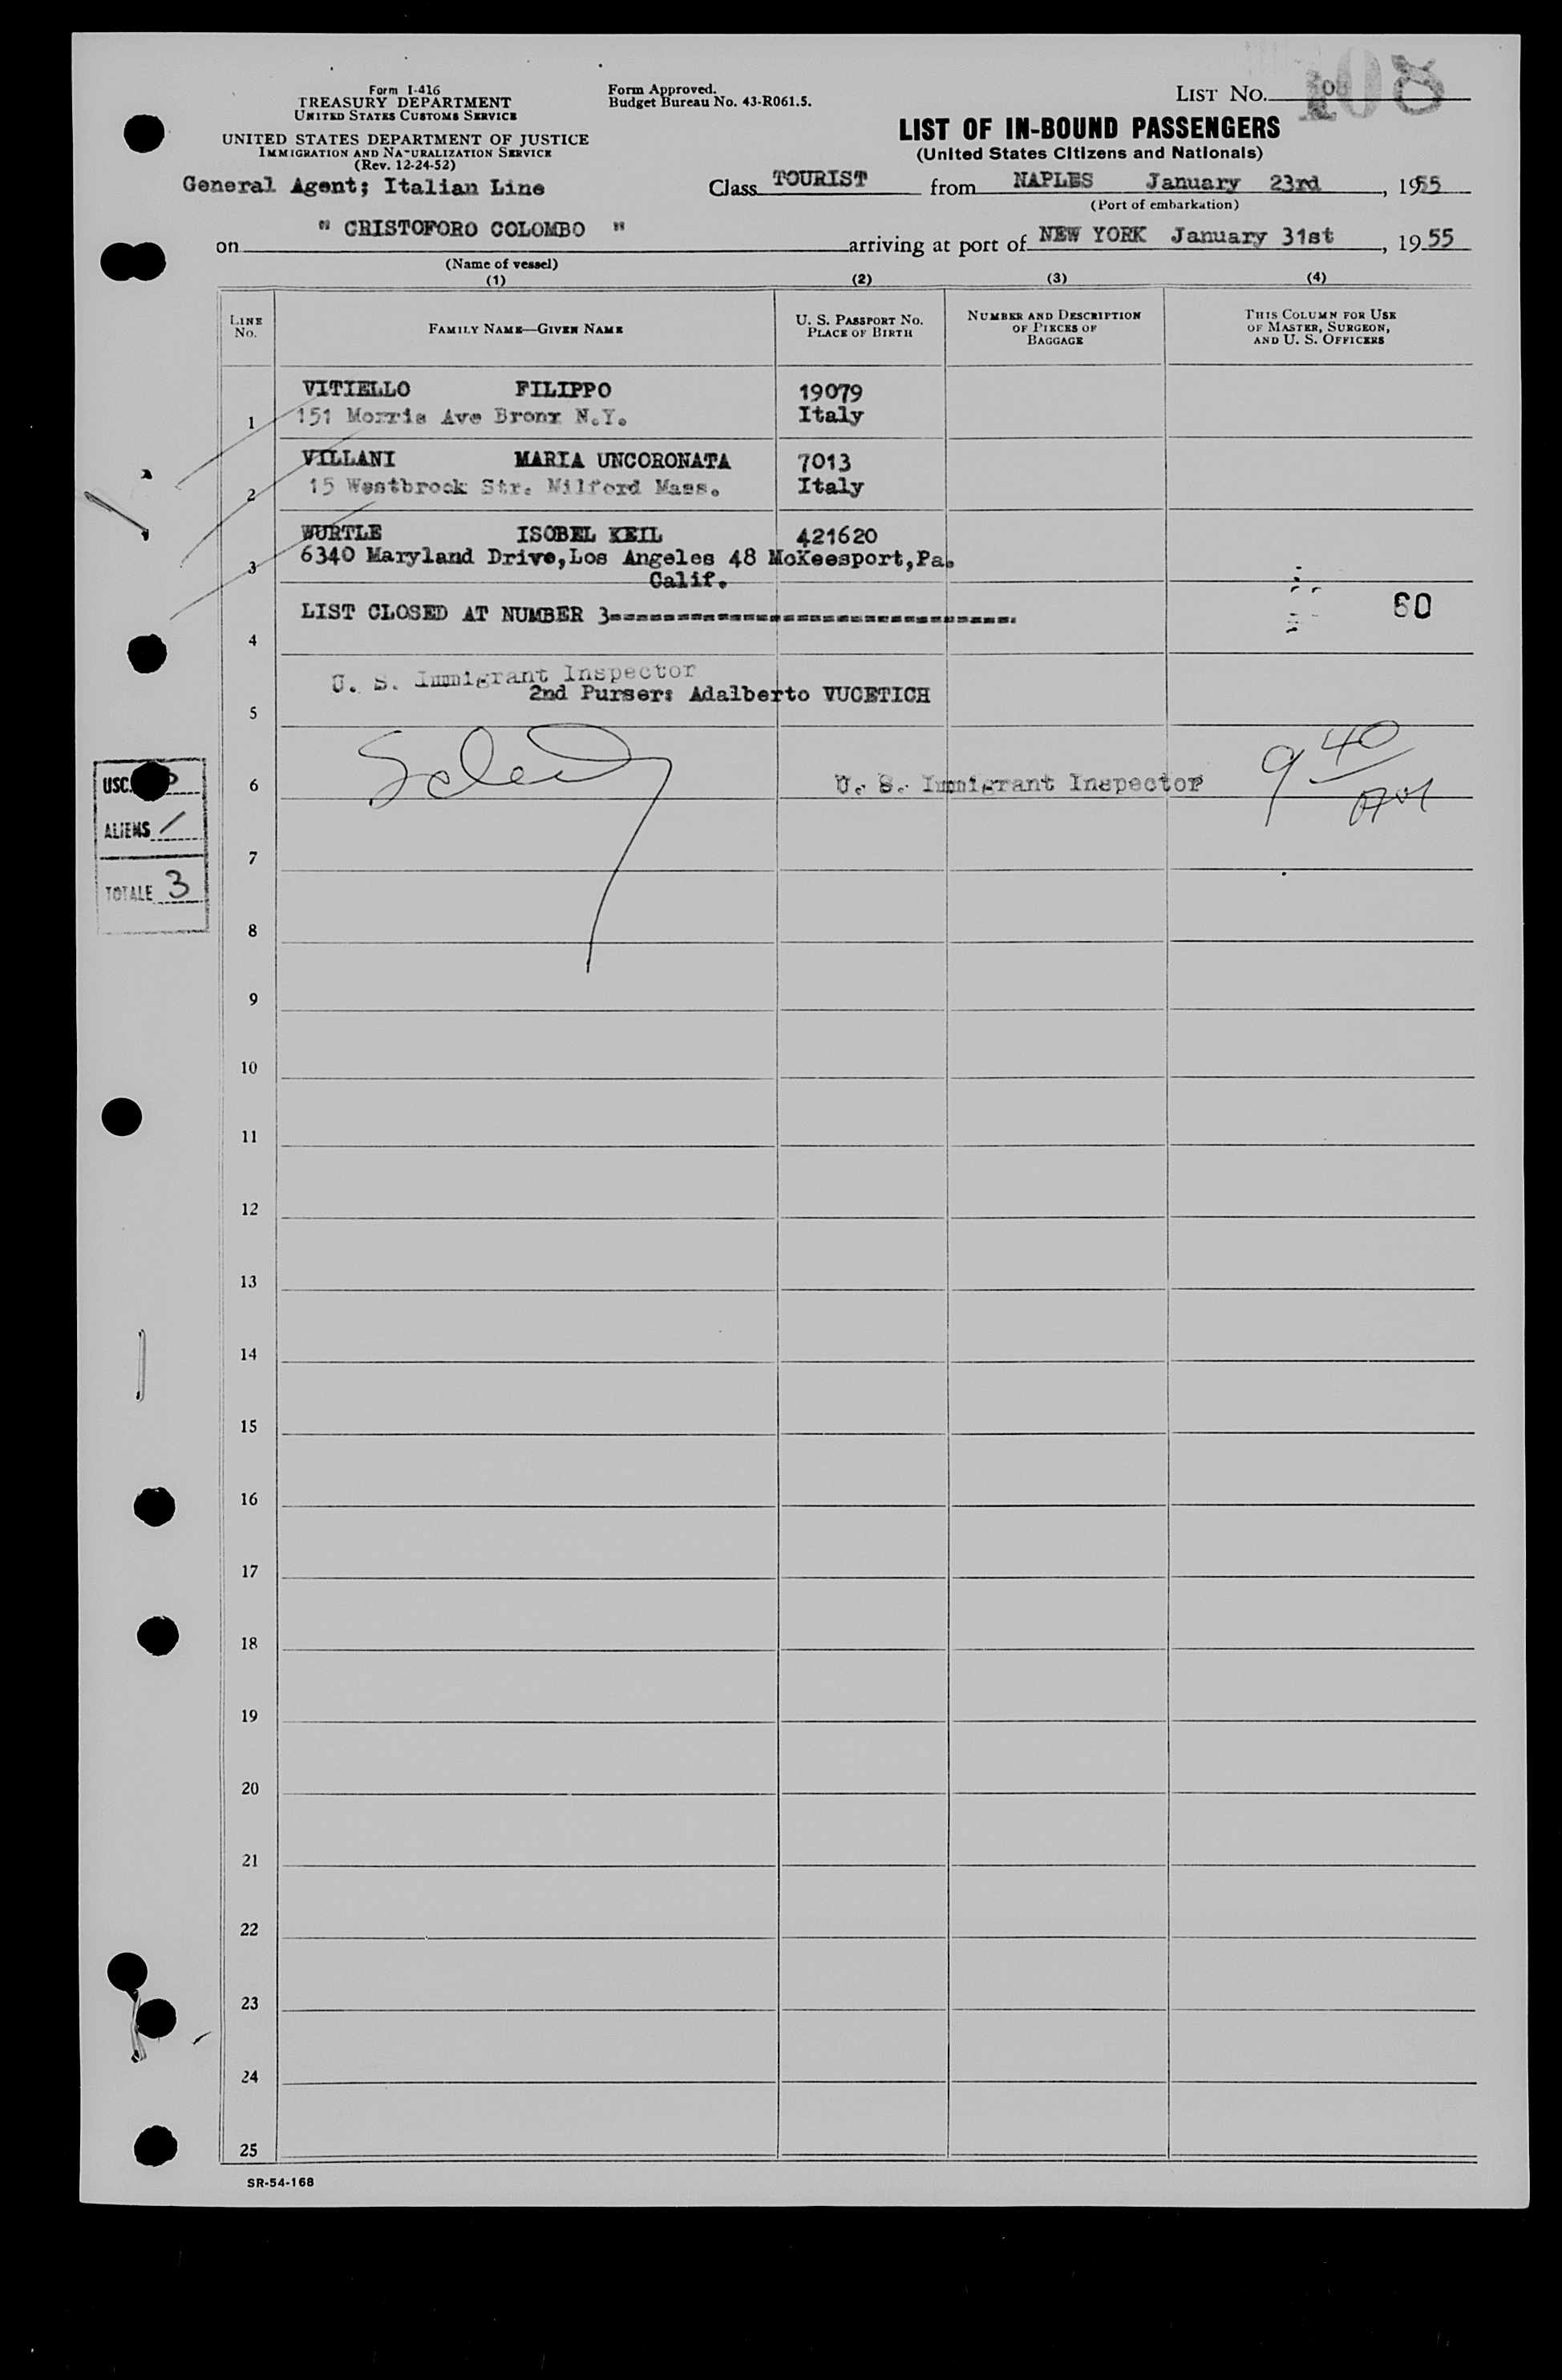 Form I-416
TREASURY DEPARTMENT
UNITED STATES CUSTOMS SERVICE
UNITED STATES DEPARTMENT OF JUSTICE
IMMIGRATION AND NATURALIZATION SERVICE
(Rev. 12-24-52)
Form Approved.
Budget Bureau No. 43-R061.5.
LIST NO. 108
108
LIST OF IN-BOUND PASSENGERS
(United States Citizens and Nationals)
General Agent; Italian Line
Class TOURIST from NAPLES January 23rd, 1955
(Port of embarkation)
on " CRISTOFORO COLOMBO " arriving at port of NEW YORK January 31st, 1955
(Name of vessel)
(1) (2) (3) (4)
LINE NO.
FAMILY NAME—GIVEN NAME
U. S. PASSPORT NO.
PLACE OF BIRTH
NUMBER AND DESCRIPTION
OF PIECES OF
BAGGAGE
THIS COLUMN FOR USE
OF MASTER, SURGEON,
AND U. S. OFFICERS
VITIELLO FILIPPO 19079
1 151 Morris Ave Bronx N.Y. Italy
VILLANI MARIA UNCORONATA 7013
2 15 Westbrook Str. Milford Mass. Italy
WURTLE ISOBEL KEIL 421620
3 6340 Maryland Drive,Los Angeles 48 McKeesport,Pa.
Calif.
LIST CLOSED AT NUMBER 3 60
4
U. S. Immigrant Inspector
2nd Purser: Adalberto VUCETICH
5
6 U. S. Immigrant Inspector 9 40 AM
USC.
ALIENS /
TOTALE 3
7
8
9
10
11
12
13
14
15
16
17
18
19
20
21
22
23
24
25
SR-54-168